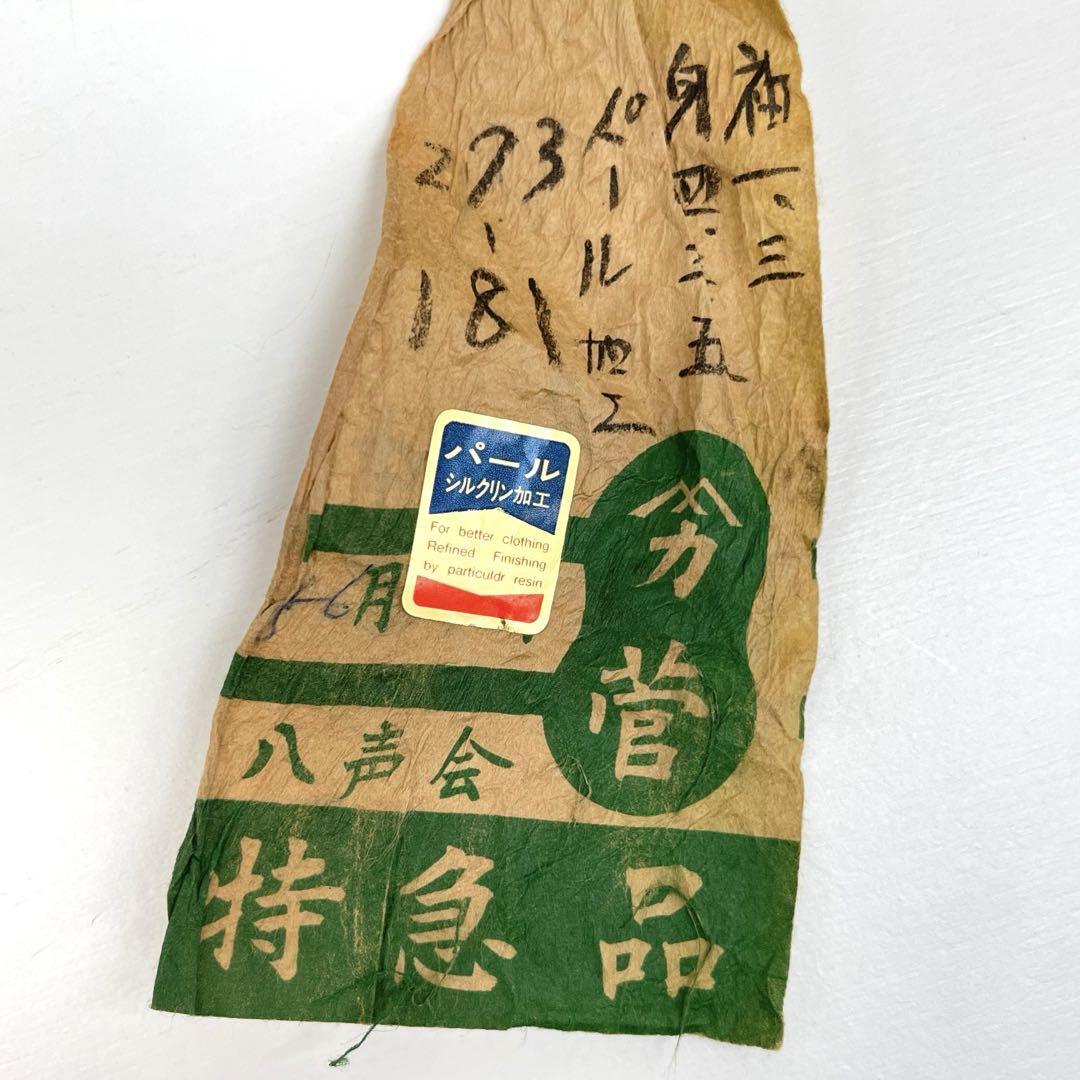 袖一.三
身四.三.五
パール加工
273
-
181
パール
シルクリン加工
For better clothing
Refined Finishing
by particuldr resin
力
菅
月
八声会
特急品